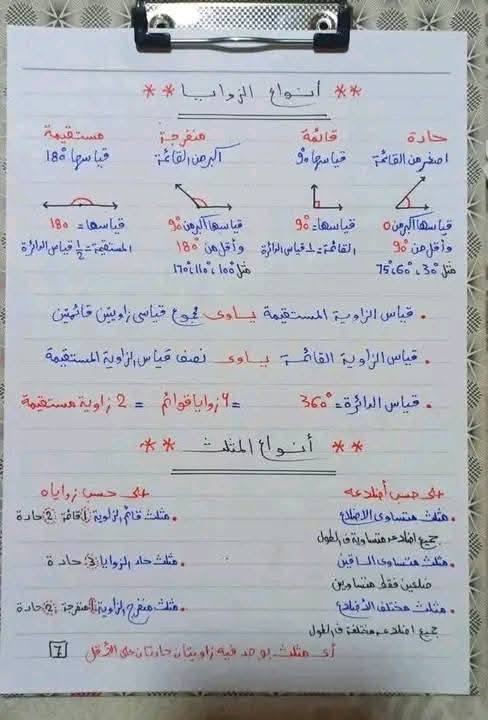 ** أنواع الزوايا **
حادة قائمة منفرجة مستقيمة
اصغر من القائمة قياسها 90° أكبر من القائمة قياسها 180°
قياسها أكبر من 0 قياسها = 90° قياسها أكبر من 90° قياسها = 180
وأقل من 90° القائمة = 1/4 قياس الدائرة وأقل من 180° المستقيمة = 1/2 قياس الدائرة
مثل 30°، 60°، 75° مثل 100°، 110°، 170°
• قياس الزاوية المستقيمة يساوى مجموع قياسى زاويتين قائمتين
• قياس الزاوية القائمة يساوى نصف قياس الزاوية المستقيمة
• قياس الدائرة = 360° = 4 زوايا قوائم = 2 زاوية مستقيمة
** أنواع المثلث **
على حسب أضلاعه على حسب زواياه
• مثلث متساوى الاضلاع • مثلث قائم الزاوية 1 قائمة 2 حادة
جميع اضلاعه متساوية فى الطول
• مثلث متساوى الساقين • مثلث حاد الزوايا 3 حادة
ضلعين فقط متساوين
• مثلث مختلف الأضلاع • مثلث منفرج الزاوية 1 منفرجة 2 حادة
جميع اضلاعه مختلفة فى الطول
أى مثلث يوجد فيه زاويتان حادتان على الأقل 7